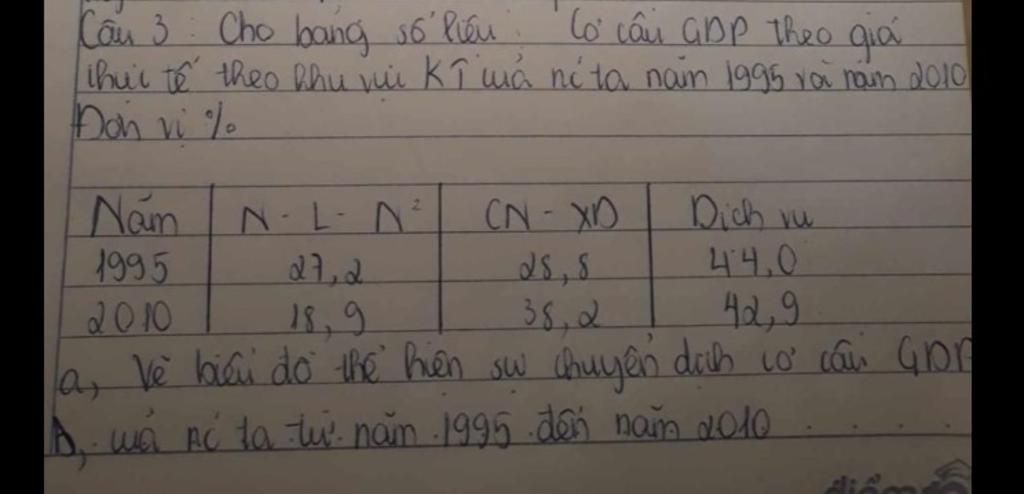 Câu 3: Cho bảng số liệu: Cơ cấu GDP theo giá
thực tế theo khu vực KT của nc ta năm 1995 và năm 2010
Đơn vị %
Năm N - L - N² CN - XD Dịch vụ
1995 27,2 28,8 44,0
2010 18,9 38,2 42,9
a, Vẽ biểu đồ thể hiện sự chuyển dịch cơ cấu GDP
của nc ta từ năm 1995 đến năm 2010